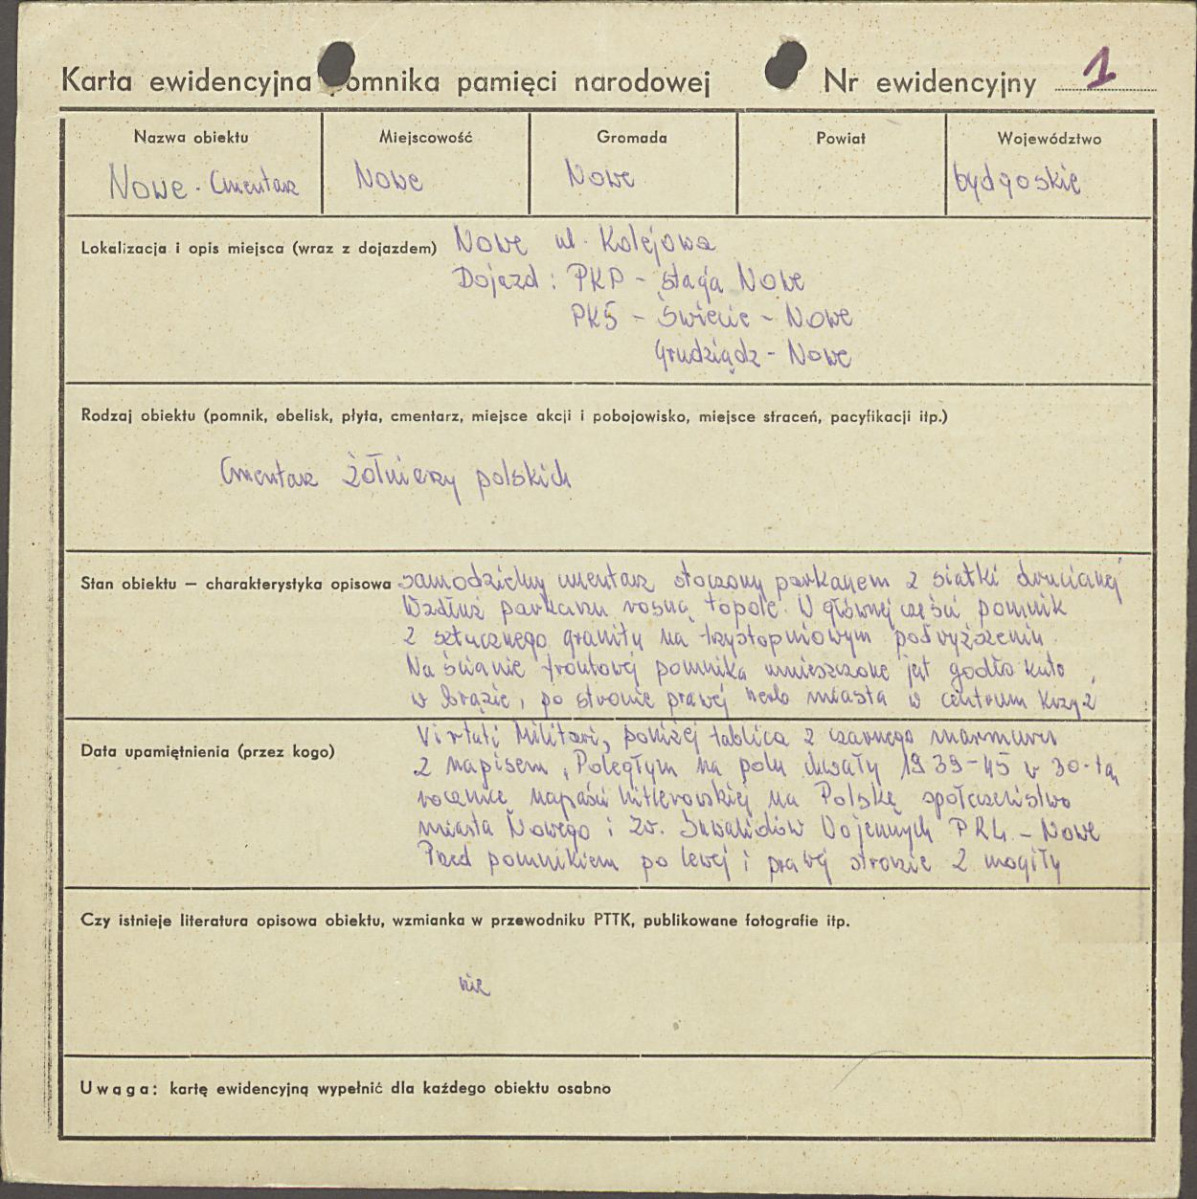 Karta ewidencyjna pomnika pamięci narodowej Nr ewidencyjny 1
Nazwa obiektu Miejscowość Gromada Powiat Województwo
Nowe - Cmentarz Nowe Nowe bydgoskie
Lokalizacja i opis miejsca (wraz z dojazdem) Nowe ul. Kolejowa
Dojazd : PKP - stacja Nowe
PKS - Świecie - Nowe
Grudziądz - Nowe
Rodzaj obiektu (pomnik, obelisk, płyta, cmentarz, miejsce akcji i pobojowisko, miejsce straceń, pacyfikacji itp.)
Cmentarz żołnierzy polskich
Stan obiektu — charakterystyka opisowa samodzielny cmentarz otoczony parkanem z siatki drucianej
Wzdłuż parkanu rosną topole. W głównej części pomnik
z sztucznego granitu na trzystopniowym podwyższeniu.
Na ścianie frontowej pomnika umieszczone jest godło kuto
w brązie, po stronie prawej herb miasta w centrum krzyż
Virtuti Militari, poniżej tablica z czarnego marmuru
Data upamiętnienia (przez kogo)
z napisem „Poległym na polu chwały 1939-45 w 30-tą
rocznicę napaści hitlerowskiej na Polskę społeczeństwo
miasta Nowego i Zw. Inwalidów Wojennych PRL - Nowe
Przed pomnikiem po lewej i prawej stronie 2 mogiły
Czy istnieje literatura opisowa obiektu, wzmianka w przewodniku PTTK, publikowane fotografie itp.
nie
Uwaga: kartę ewidencyjną wypełnić dla każdego obiektu osobno